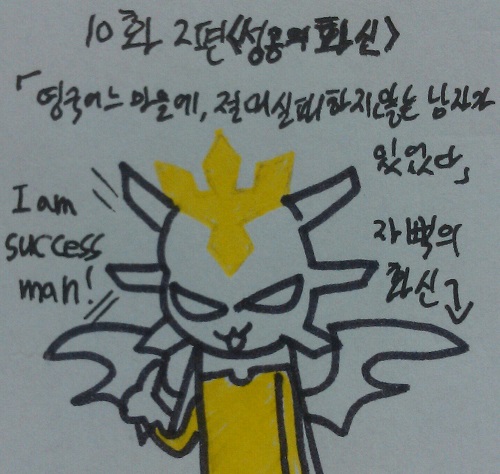 10화 2편<성공의 화신>
「영국어느 마을에, 절대실패하지않는 남자가
있었다」
I am
success
man!
자뻑의
화신